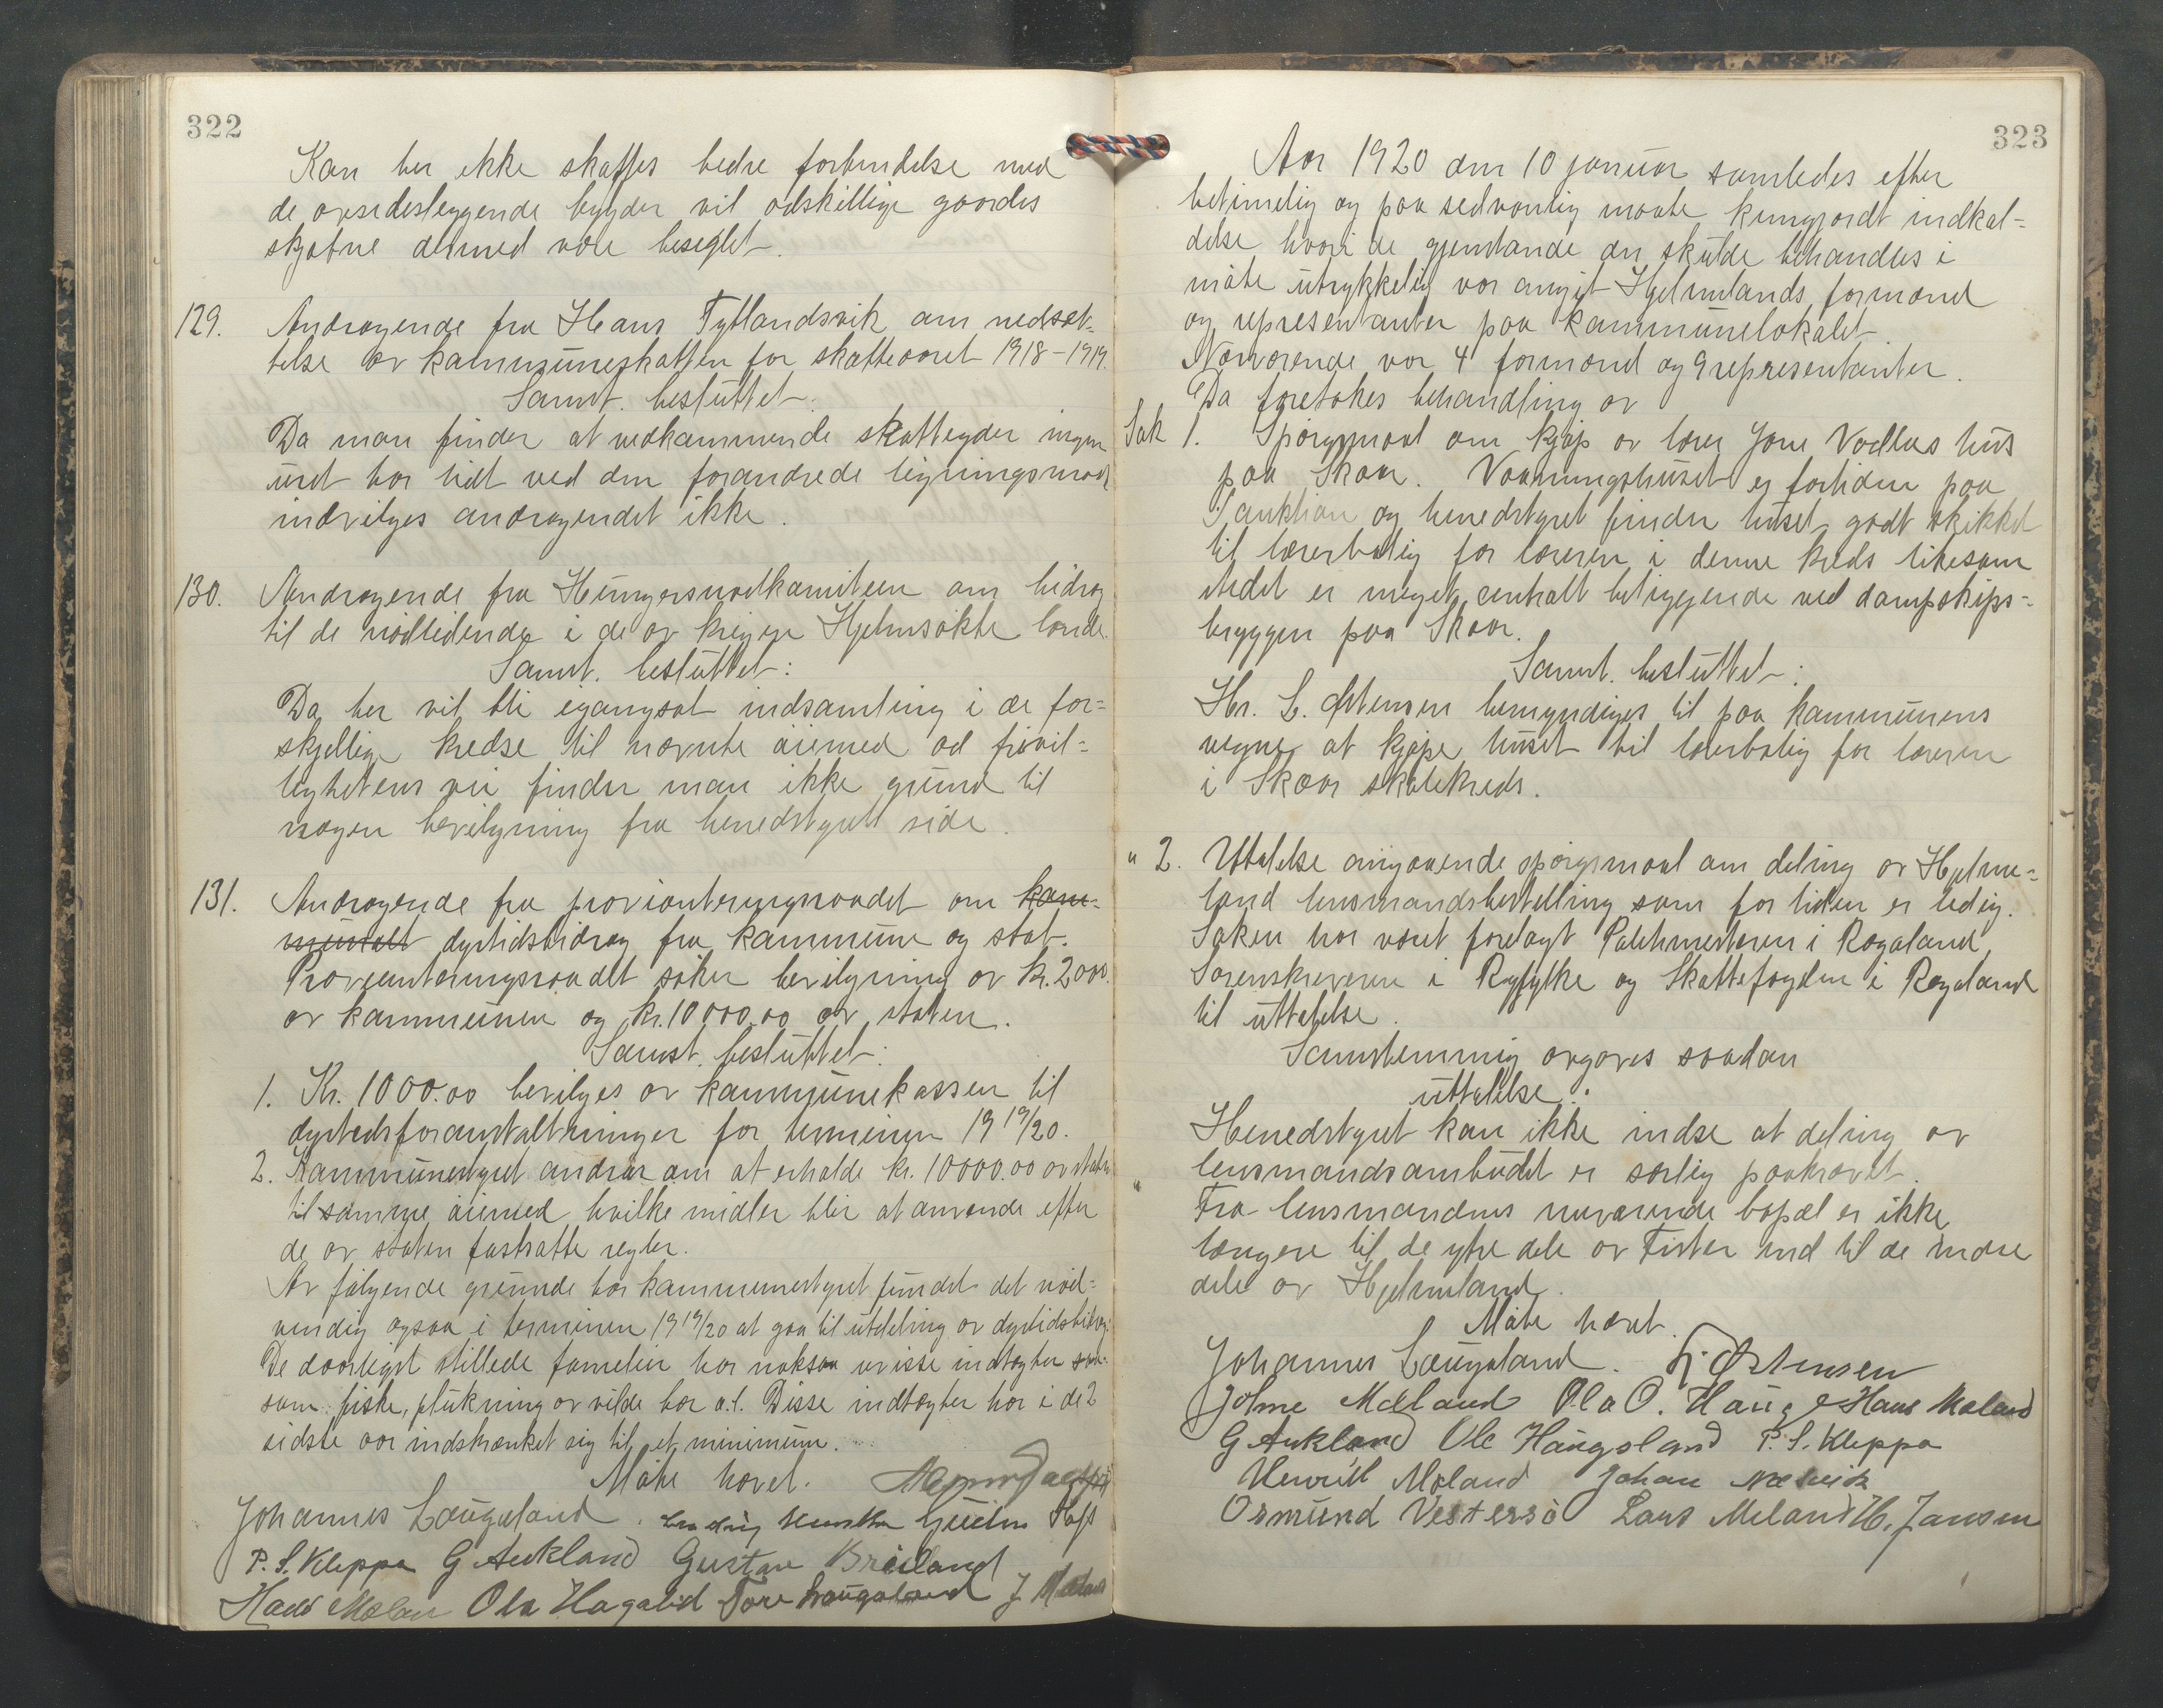 322
Kan her ikke skaffes bedre forbindelse med
de avsidesleggende bygder vil adskillige gaardes
skjæbne dermed være beseglet.
129. Andragende fra Hans Tytlandsvik om nedsæt-
telse av kommuneskatten for skatteaaret 1918-1919.
Samt. besluttet:
Da man finder at vedkommende skatteyder ingen
uret har lidt ved den forandrede ligningsmaate
indvilges andragendet ikke.
130. Andragende fra Hungersnødkomiteen om bidrag
til de nødlidende i de av krigen hjemsøkte lande.
Samt. besluttet:
Da her vil bli igangsat indsamling i de for-
skjellige kredse til nævnte øiemed ad frivil-
lighetens vei finder man ikke grund til
nogen bevilgning fra herredstyrets side.
131. Andragende fra provianteringsraadet om kom-
munalt dyrtidsbidrag fra kommune og stat.
Provianteringsraadet søker bevilgning av kr. 2000.
av kommunen og kr. 10000.00 av staten.
Samst. besluttet:
1. Kr. 1000.00 bevilges av kommunekassen til
dyrtidsforanstaltninger for terminen 1919/20.
2. Kommunestyret andrar om at erholde kr. 10000.00 av staten
til samme øiemed hvilke midler blir at anvende efter
de av staten fastsatte regler.
Av følgende grunde har kommunestyret fundet det nød-
vendig ogsaa i terminen 1919/20 at gaa til utdeling av dyrtidsbidrag:
De daarligst stillede familier har noksaa visse indtægter saa-
som: fiske, plukning av vilde bær o.l. Disse indtægter har i de 2
sidste aar indskrænket sig til et minimum.
Møte hævet.
Johannes Laugaland
P. S. Kleppa G Aukland Gustav Breiland
Hans Mæland Ola Hagalid Tore Laugaland J. Mæland
323
Aar 1920 den 10 januar samledes efter
betimelig og paa sedvanlig maate kungjordt indkal-
delse hvori de gjenstande der skulde behandles i
møte utrykkelig var angit Hjelmelands formænd
og representanter paa kommunelokalet.
Nærværende var 4 formænd og 9 representanter.
Da foretokes behandling av
Sak 1. Spørgsmaal om kjøp av lærer Jone Vadlas hus
paa Skaar. Vaaningshuset er fortiden paa
Sauktion og herredstyret finder huset godt skikket
til lærerbolig for læreren i denne kreds likesom
stedet er meget centralt beliggende ved dampskips-
bryggen paa Skaar.
Samt. besluttet:
Hr. L. Østensen bemyndiges til paa kommunens
vegne at kjøpe huset til lærerbolig for læreren
i Skaar skolekreds.
" 2. Uttalelse angaaende spørgsmaal om deling av Hjelme-
land lensmandsbestilling som for tiden er ledig.
Saken har været forelagt Politimesteren i Rogaland,
Sorenskriveren i Ryfylke og Skattefogden i Rogaland
til uttalelse.
Samstemmig avgaves saadan
uttalelse:
Herredstyret kan ikke indse at deling av
lensmandsombudet er særlig paakrævet.
" Fra lensmandens nuværende bopæl er ikke
længere til de ytre dele av Fister end til de indre
dele av Hjelmeland.
Møte hævet.
Johannes Laugaland. L. Østensen
Johne Mæland Ola O. Hauge Hans Mæland
G Aukland Ole Haugsland P. S. Kleppa
Henrik Mæland Johan Næsvik
Osmund Vestersø Lars Meland H. Jansen